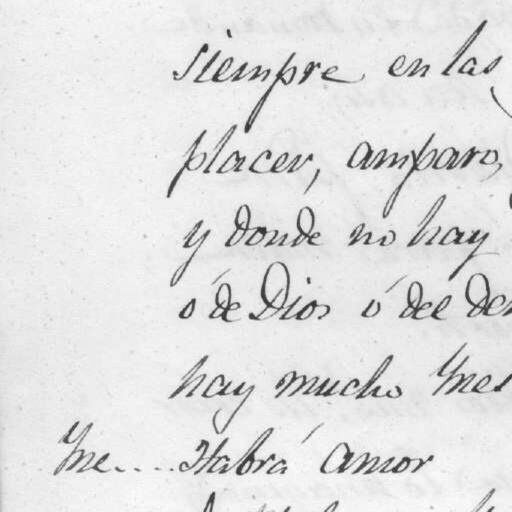 siempre en las
placer, amparo,
y donde no hay
ó de Dios ó del
hay mucho Ynes
Yne.... Habrá amor